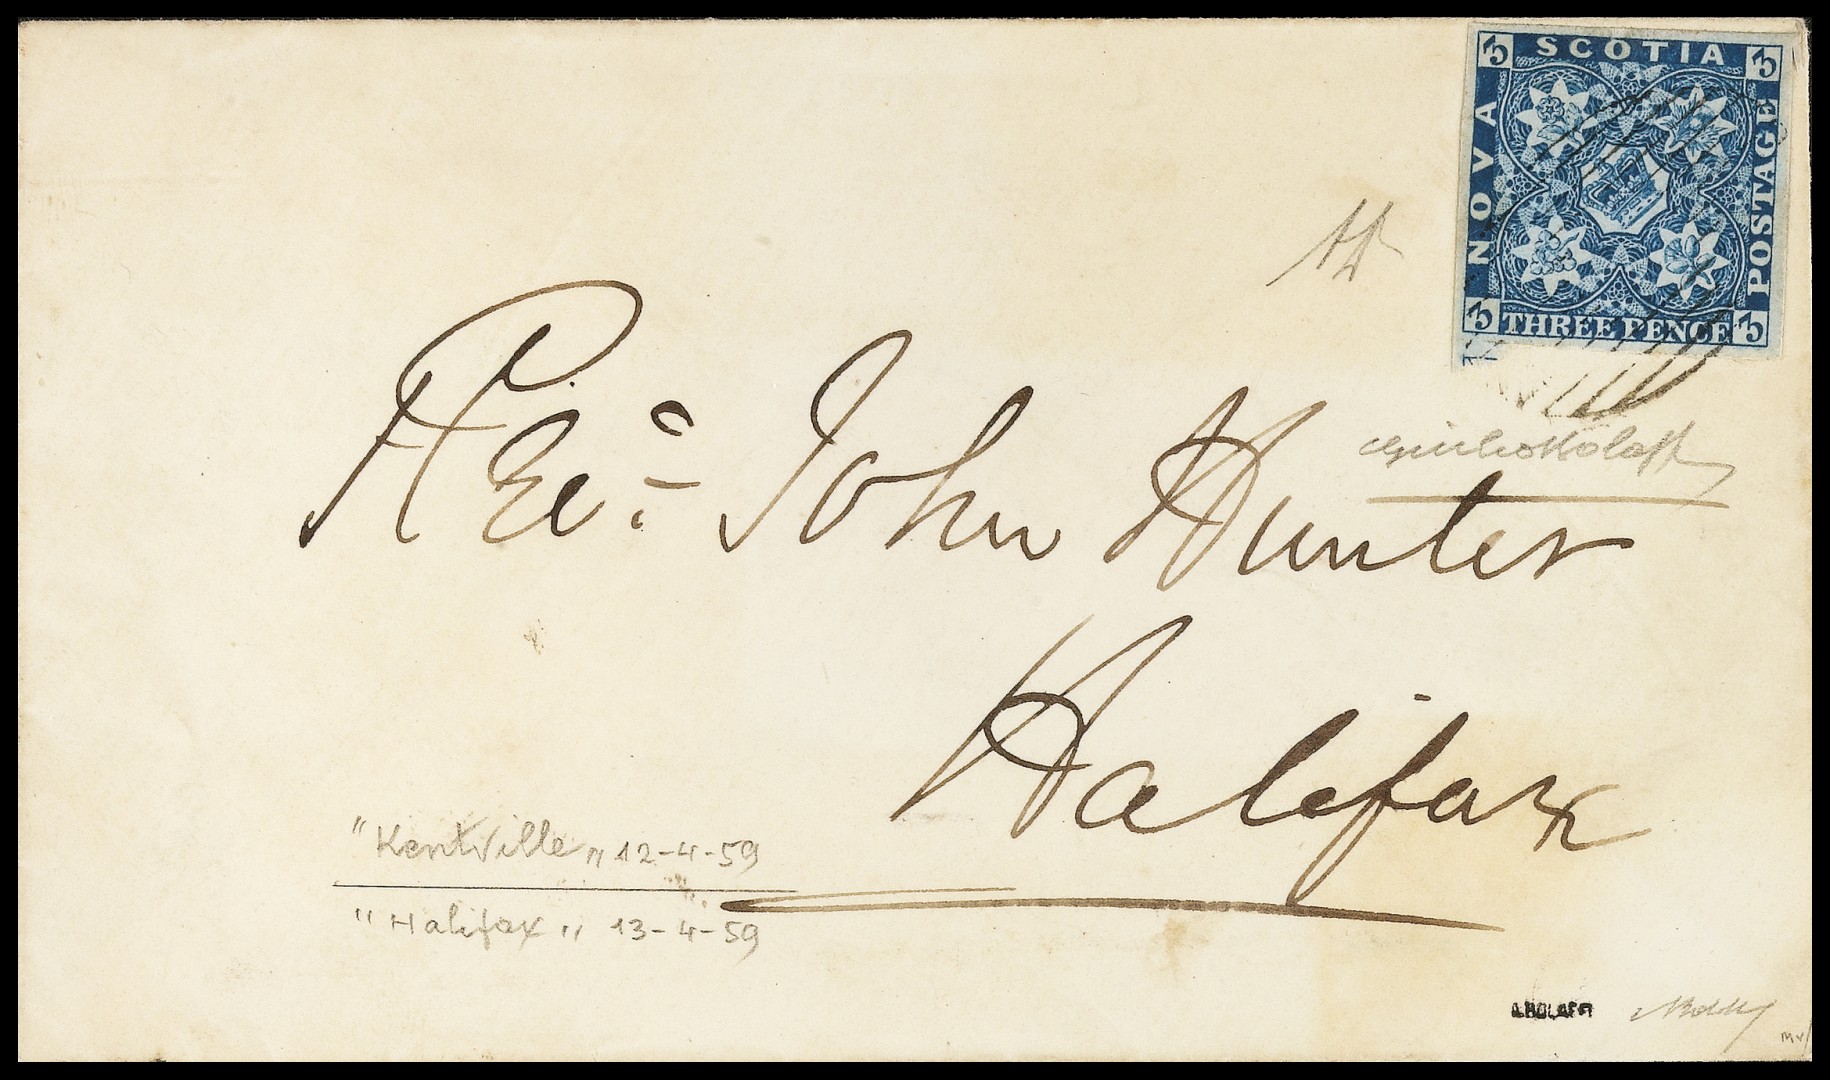 3 SCOTIA 3
NOVA
POSTAGE
3 THREE PENCE 3
Rev: John Hunter
Halifax
"Kentville" 12-4-59
"Halifax" 13-4-59